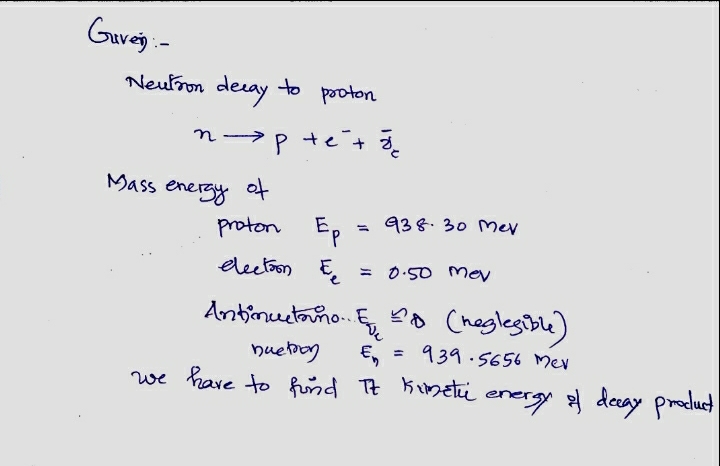 Given :-
Neutron decay to proton
n → p + e⁻ + ν̄e
Mass energy of
proton Ep = 938.30 Mev
electron Ee = 0.50 Mev
Antinuetrino.. Eν̄e ≅ 0 (neglegible)
nuetron En = 939.5656 Mev
we have to find Kinetic energy of decay product